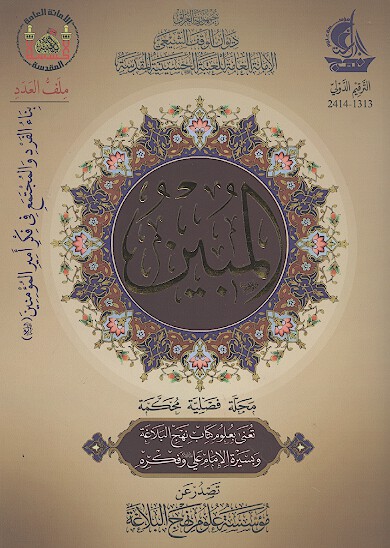 جمهورية العراق
ديوان الوقف الشيعي
الأمانة العامة للعتبة الحسينية المقدسة
الترقيم الدولي
2414-1313
الأمانة العامة
المقدسة
ملف العدد
بناء الفرد والمجتمع في فكر أمير المؤمنين
المبين
مجلة فصلية محكمة
تعنى بعلوم كتاب نهج البلاغة
وبسيرة الإمام علي وفكره
تصدر عن
مؤسسة علوم نهج البلاغة